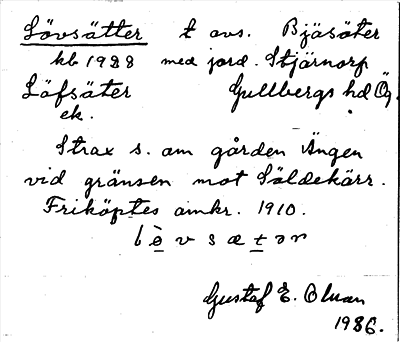 Lövsätter t avs. Bjäsäter
kb 1928 med jord. Stjärnorp
Löfsäter Gullbergs hd Ög.
ek.
Strax s. om gården Ängen
vid gränsen mot Säldekärr.
Friköptes omkr. 1910.
l ò̱ v s æ ṯ ər
Gustaf E. Olman
1986.